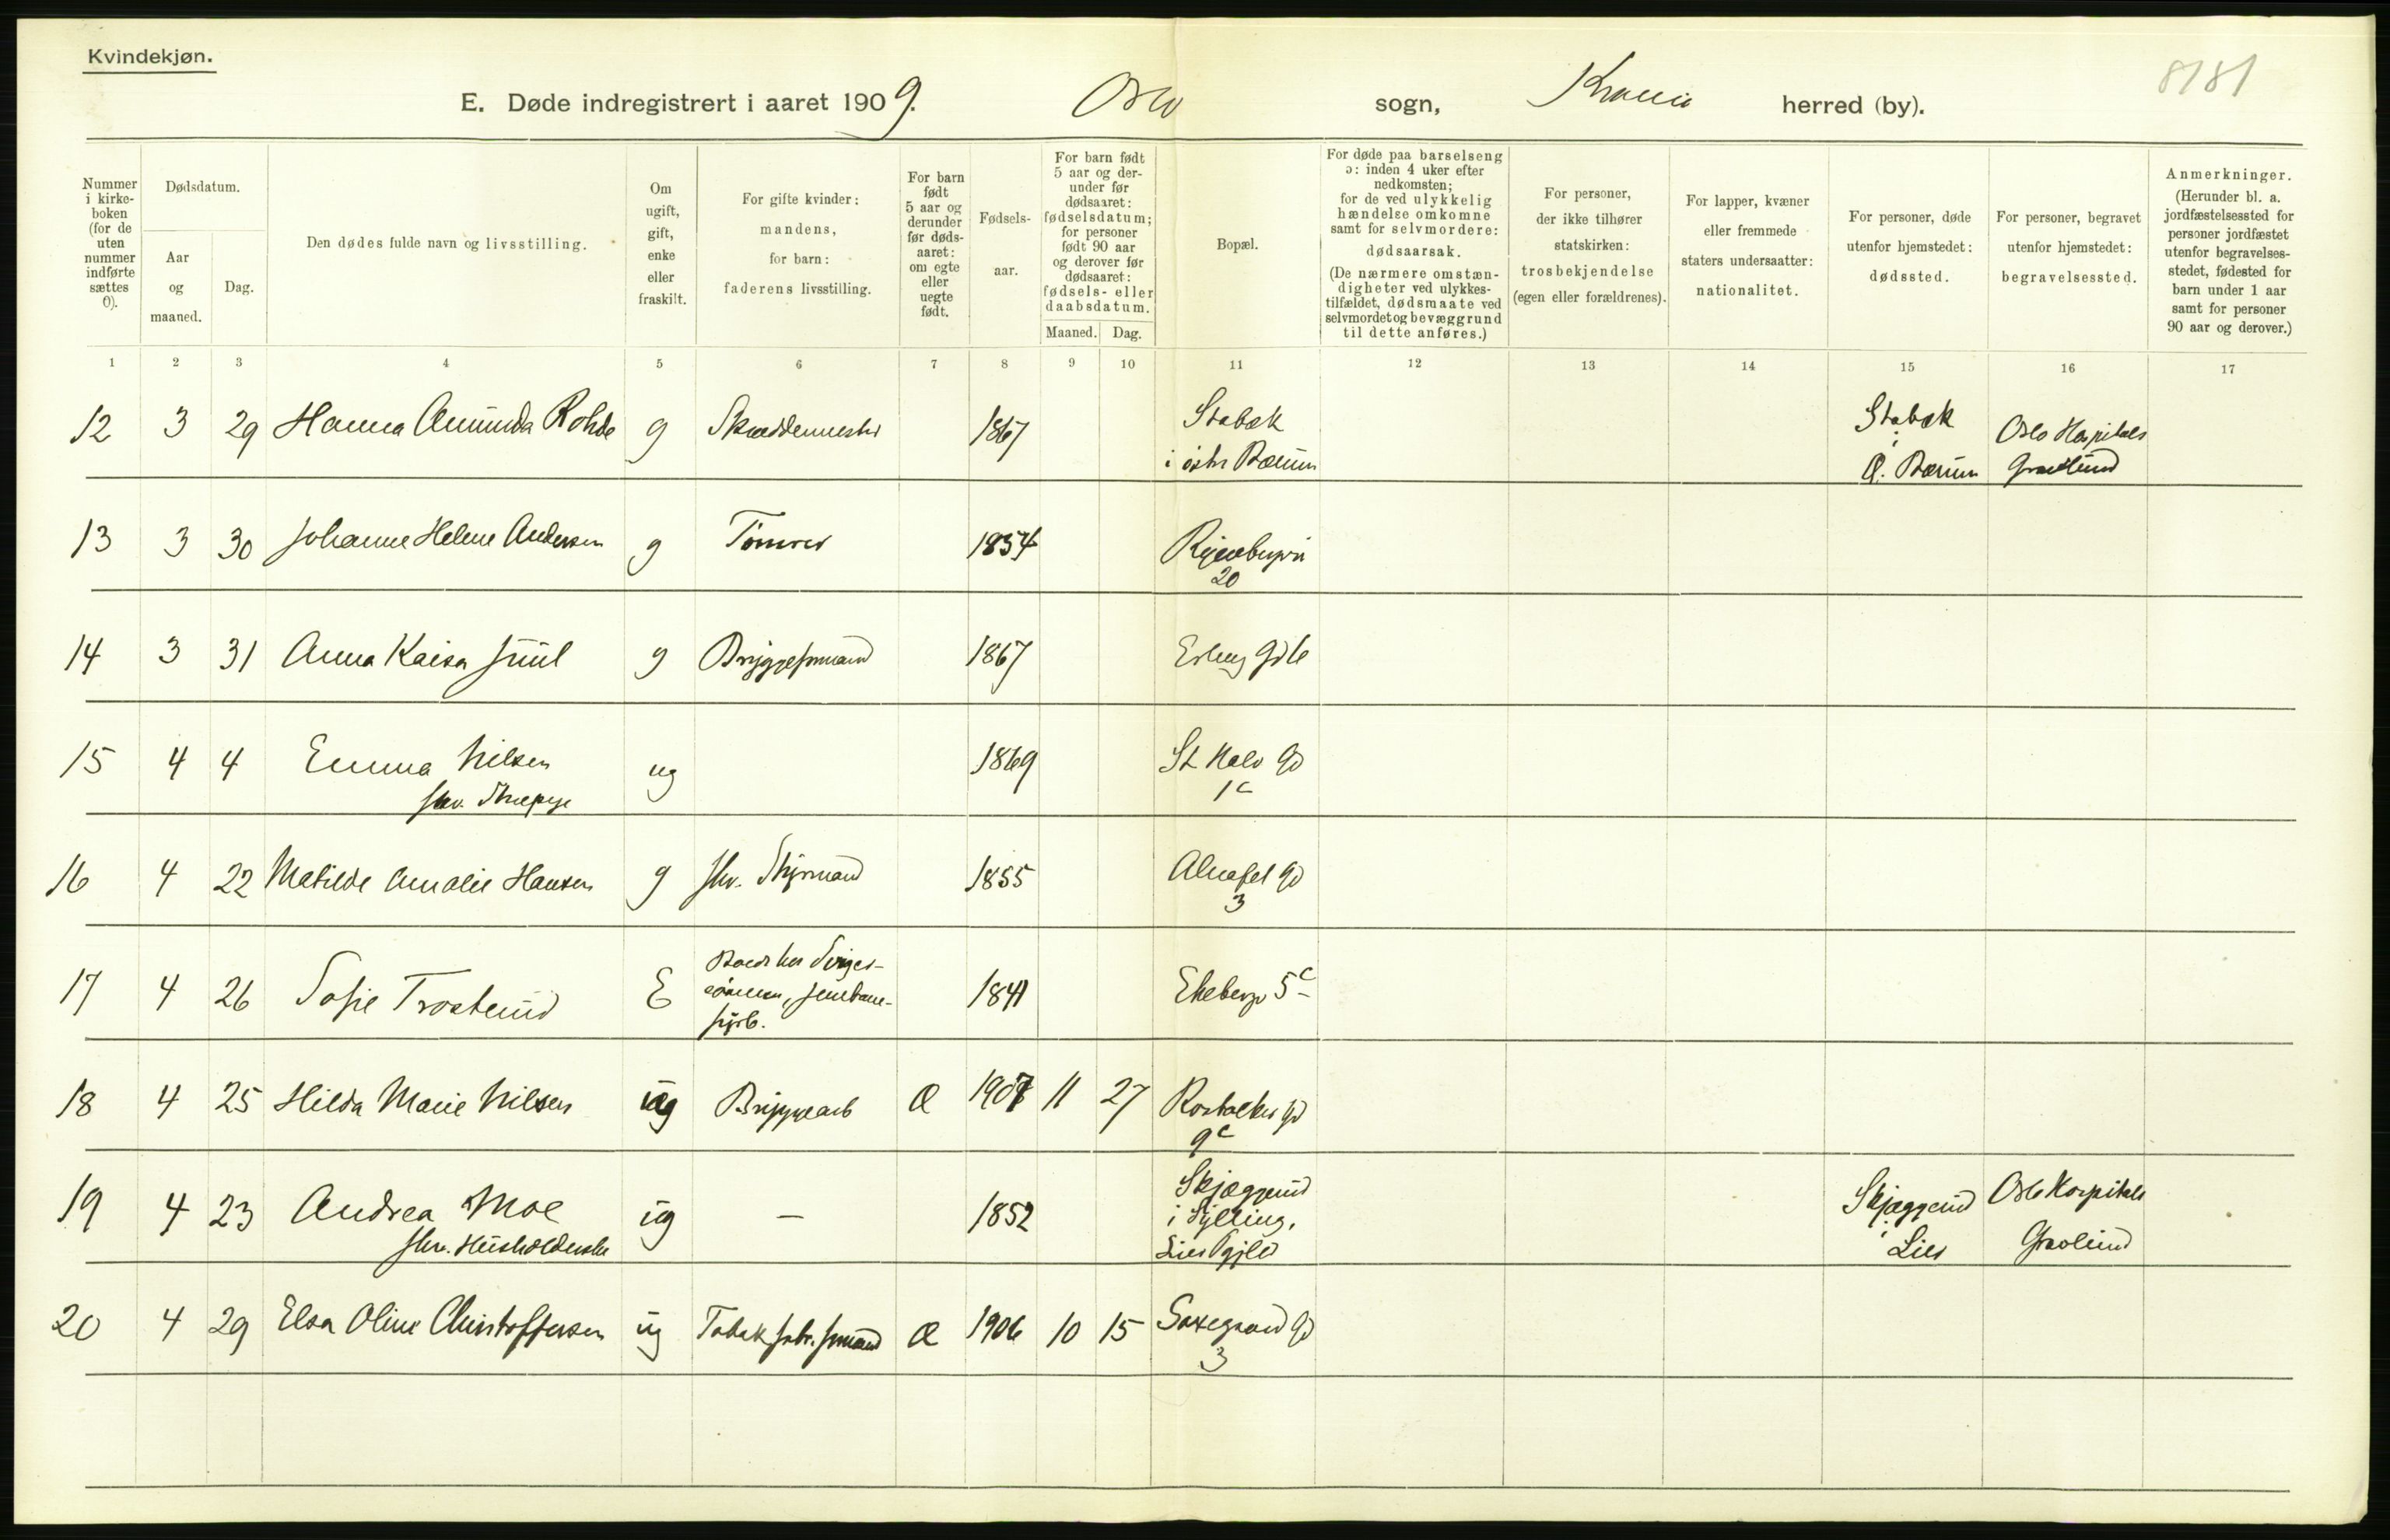 Kvindekjøn.
8181
E. Døde indregistrert i aaret 1909. Oslo sogn, Krania herred (by).
Nummer i kirkeboken (for de uten nummer indførte sættes 0).
Dødsdatum.
Aar og maaned.
Dag.
Den dødes fulde navn og livsstilling.
Om ugift, gift, enke eller fraskilt.
For gifte kvinder: mandens, for barn: faderens livsstilling.
For barn født 5 aar og derunder før dødsaaret: om egte eller uegte født.
Fødselsaar.
For barn født 5 aar og derunder før dødsaaret: fødselsdatum; for personer født 90 aar og derover før dødsaaret: fødsels- eller daabsdatum.
Maaned. Dag.
Bopæl.
For døde paa barselseng ɔ: inden 4 uker efter nedkomsten; for de ved ulykkelig hændelse omkomne samt for selvmordere: dødsaarsak. (De nærmere omstændigheter ved ulykkestilfældet, dødsmaate ved selvmordet og bevæggrund til dette anføres.)
For personer, der ikke tilhører statskirken: trosbekjendelse (egen eller forældrenes).
For lapper, kvæner eller fremmede staters undersaatter: nationalitet.
For personer, døde utenfor hjemstedet: dødssted.
For personer, begravet utenfor hjemstedet: begravelsessted.
Anmerkninger. (Herunder bl. a. jordfæstelsessted for personer jordfæstet utenfor begravelsesstedet, fødested for barn under 1 aar samt for personer 90 aar og derover.)
1 2 3 4 5 6 7 8 9 10 11 12 13 14 15 16 17
12 3 29 Hanna Amunda Rohde g Skræddermester 1867 Stabæk i østr Bærum Stabæk i Ø. Bærum Oslo Hospitals Gravlund
13 3 30 Johanne Helene Andersen g Tømrer 1854 20
14 3 31 Anna Kaisa Juul g Bryggesmand 1867 Erling Gd 6
15 4 4 Emma Nilsen ug 1869 St Halv Gd
fhv. 1c
16 4 22 Matilde Amalie Hansen g fhv. Styrmand 1855 Alnafet Gd
3
17 4 26 Sofie Trosterud E 1841 Ekebergv 5c
18 4 25 Hilda Marie Nilsen ug Bryggearb Æ 1907 11 27 Rostocker Gd
9c
19 4 23 Andrea Moe ug — 1852 Skjæggerud i Sylling, Lier Pgjld Skjæggerud i Lier Oslo Hospitals Gravlund
fhv. Husholderske
20 4 29 Elsa Oline Christoffersen ug Tobakfabr. Æ 1906 10 15 Saxegaard Gd
3